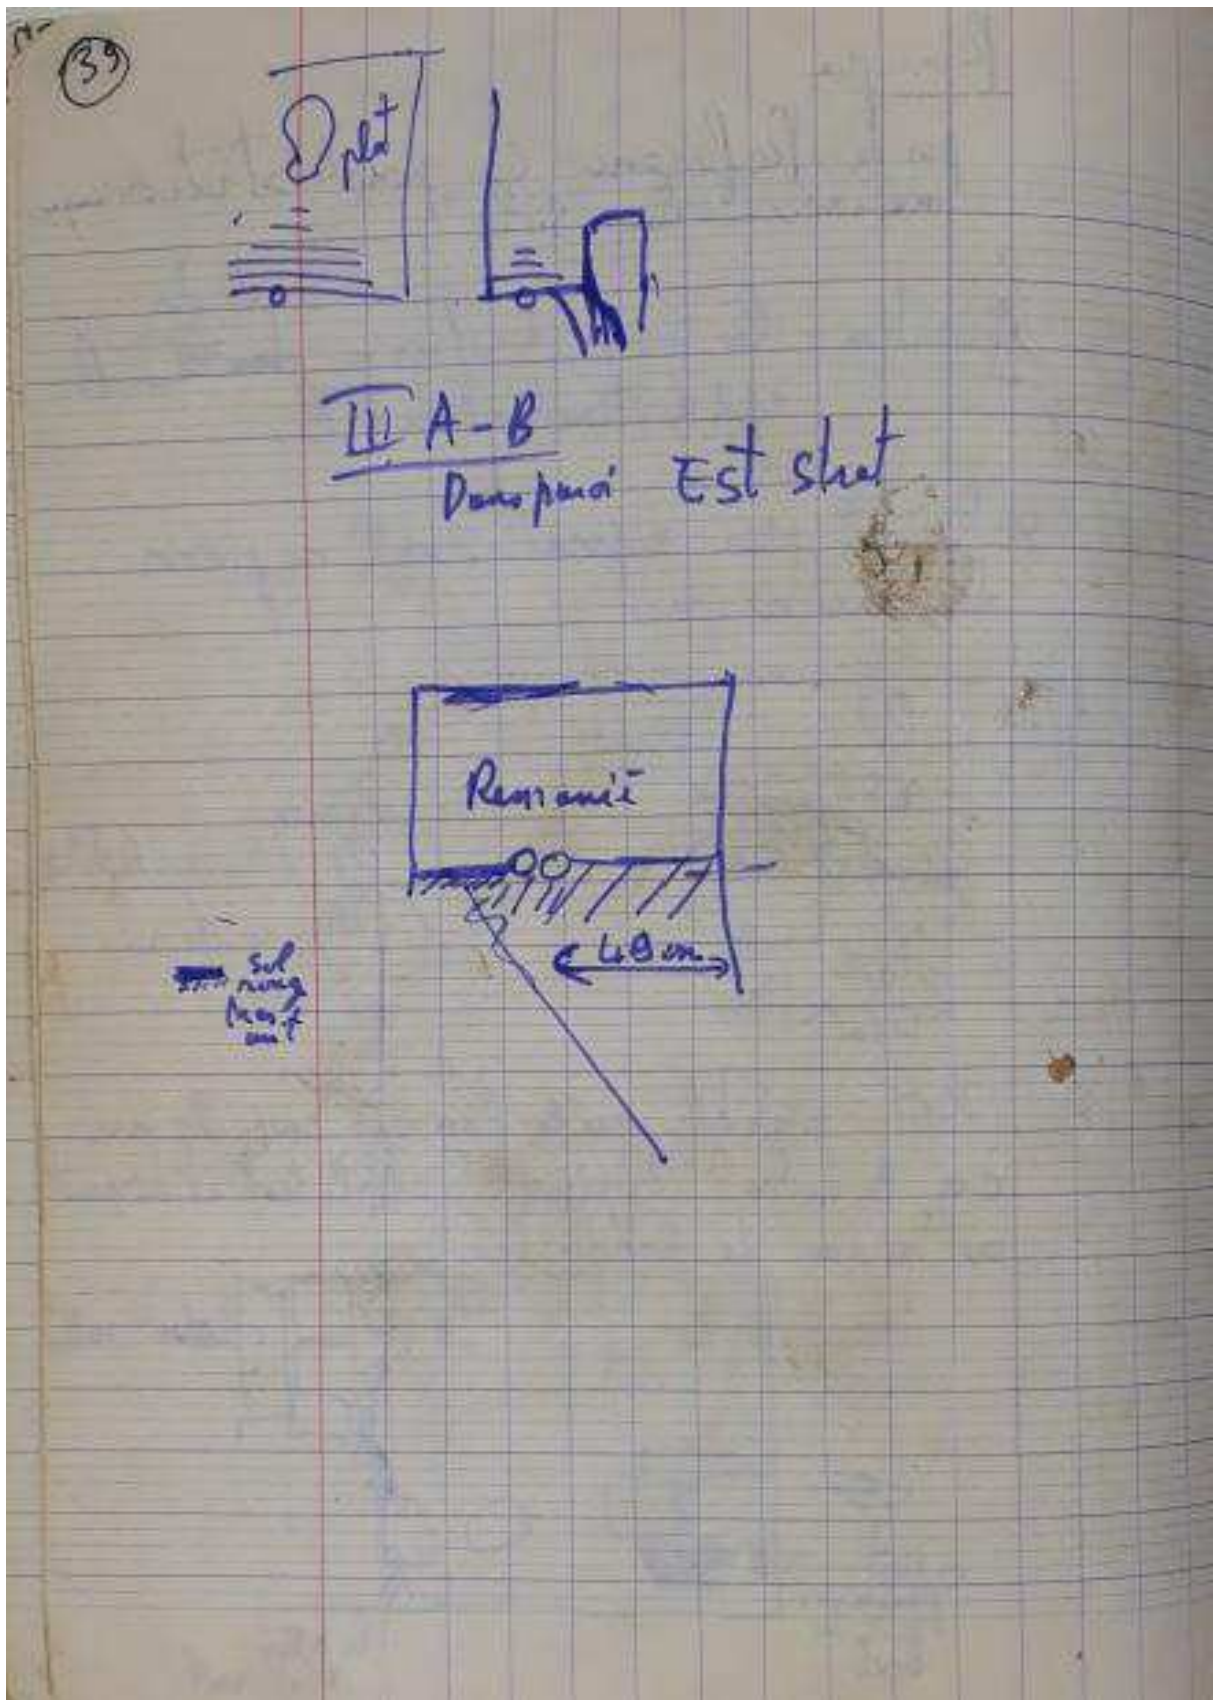 39
plat
III A-B
Dans paroi Est strat
Remanié
48 cm
sol
rouge